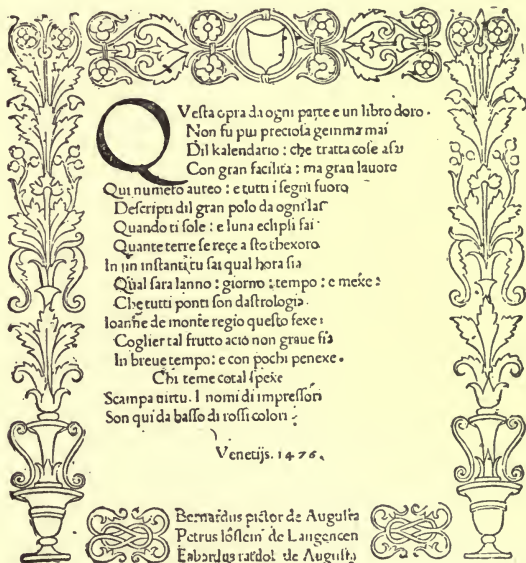 QVesta opra da ogni parte e un libro doro.
Non fu piu preciosa gemma mai
Dil kalendario: che tratta cose asai
Con gran facilita: ma gran lauoro
Qui numero aureo: e tutti i segni fuoro
Descripti dil gran polo da ogni lai
Quando ti sole: e luna eclipsi fai
Quante terre se reçe a sto thexoro.
In un instanti tu sai qual hora sia
Qual sara lanno: giorno: tempo: e mexe:
Che tutti ponti son dastrologia.
Ioanne de monte regio questo fexe:
Coglier tal frutto acio non graue sia
In breue tempo: e con pochi penexe.
Chi teme cotal spexe
Scampa uirtu. I nomi di impressori
Son qui da basso di rossi colori.
Venetijs. 1476.
Bernardus pictor de Augusta
Petrus löslein de Langencen
Erhardus ratdolt de Augusta